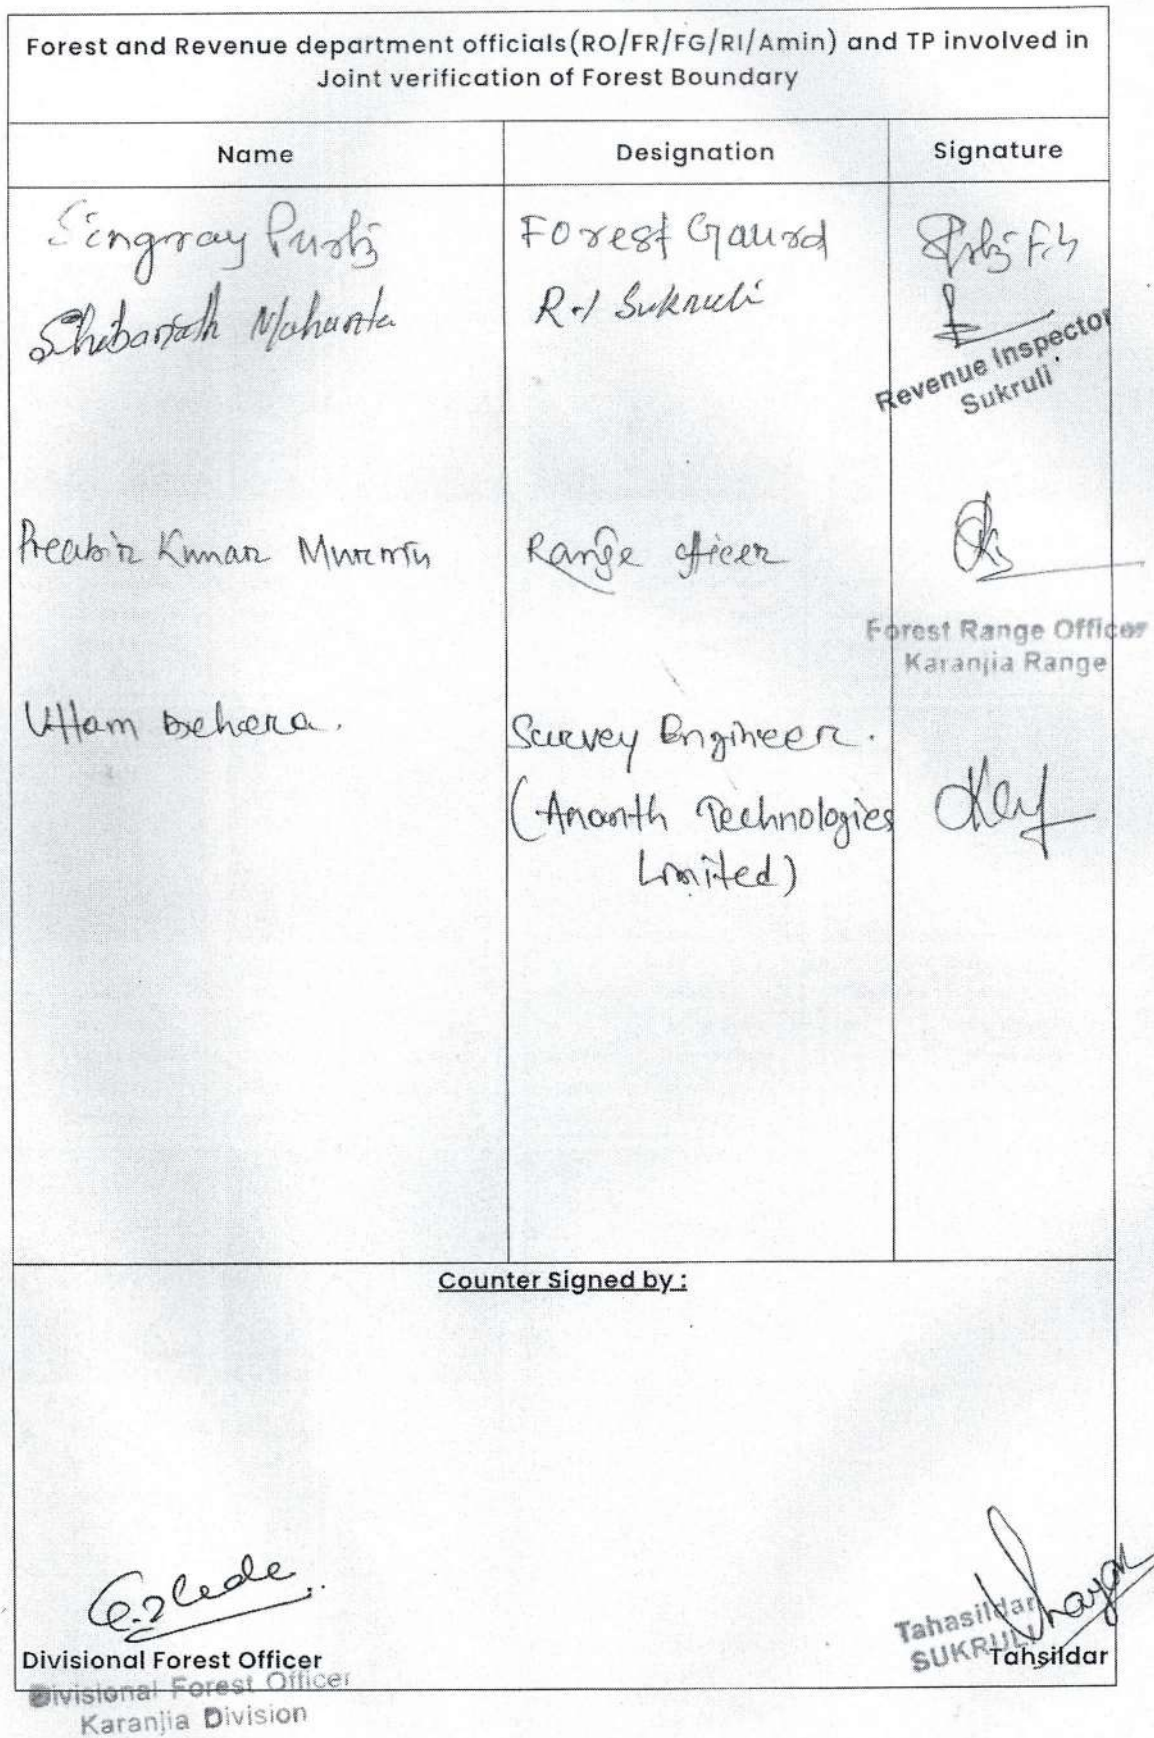 Forest and Revenue department officials(RO/FR/FG/RI/Amin) and TP involved in
Joint verification of Forest Boundary
Name Designation Signature
Singray Forest Gaurd
Shibanath Mahanta R.I Sukruli
Revenue Inspector
Sukruli
Kumar Murmu Range officer
Forest Range Officer
Karanjia Range
Uttam Behera. Survey Engineer.
(Ananth Technologies
Limited)
Counter Signed by :
Tahasildar
SUKRULI
Divisional Forest Officer Tahsildar
Divisional Forest Officer
Karanjia Division